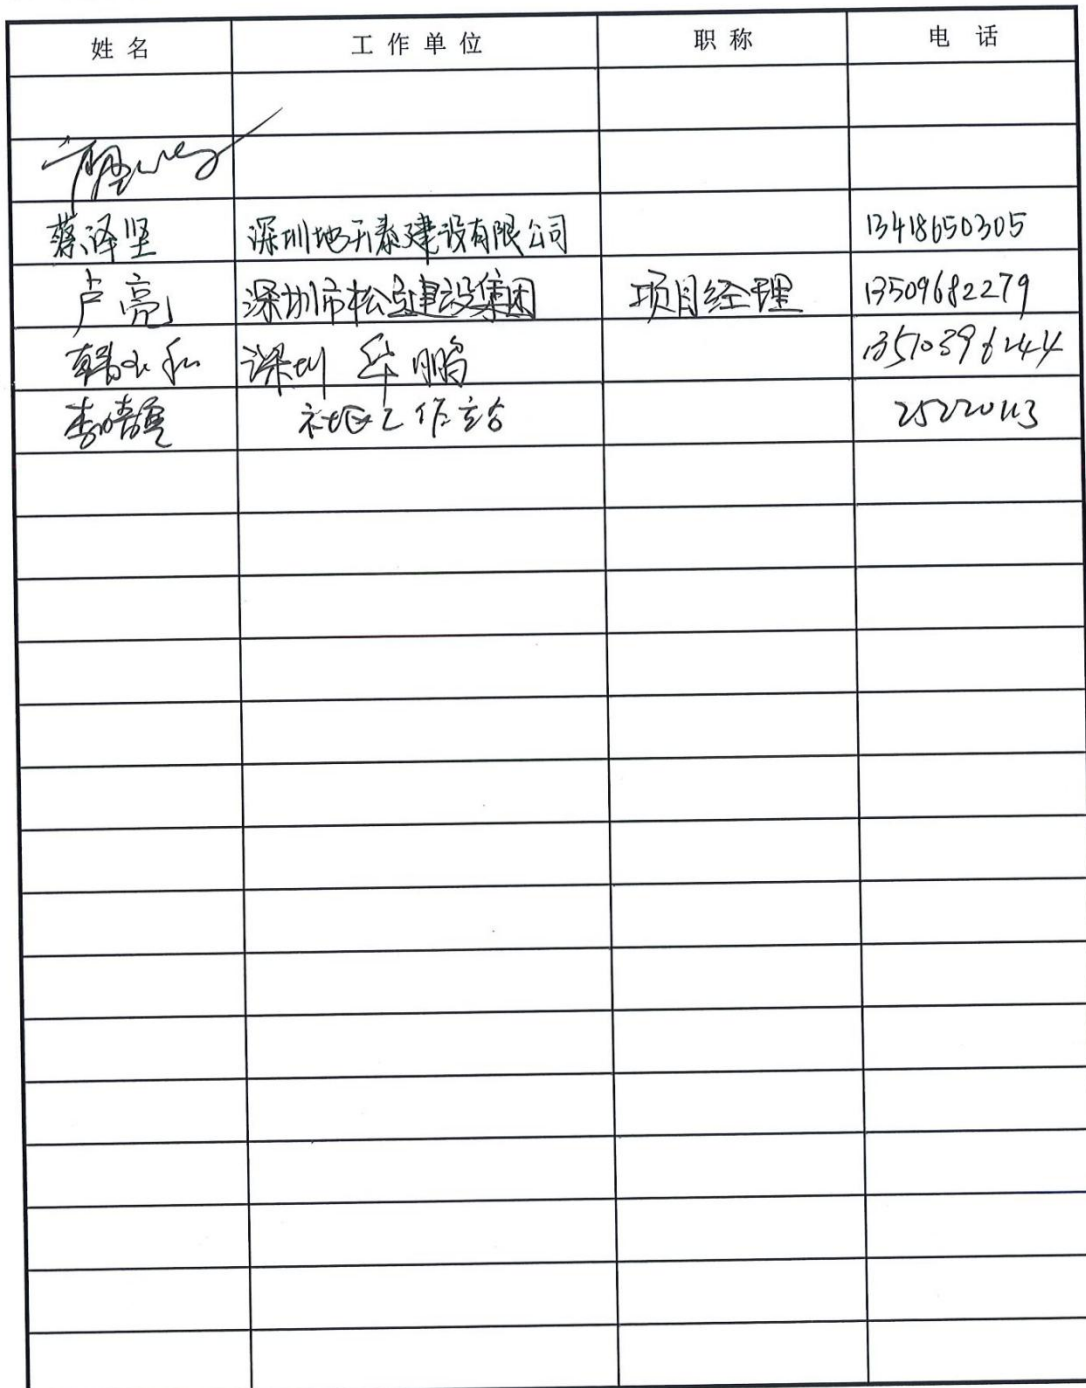 姓名 工作单位 职称 电话
蔡泽坚 深圳地天泰建设有限公司 13418650305
卢亮 深圳市松 建设集团 项目经理 13509682279
韩 和 深圳 华鹏 13510396244
李 社区工作站 25220113